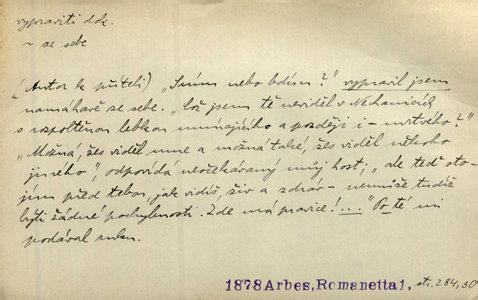 vypraviti dok.
~ ze sebe
(Autor k příteli) „Sním nebo bdím?“ vypravil jsem
namáhavě ze sebe. „Což jsem tě neviděl v Nechanicích
s rozpoltěnou lebkou umírajícího a později i – mrtvého?“
„Možná, žes viděl mne a možná také, žes viděl někoho
jiného“, odpovídá neočekávaný můj host; „ale teď sto-
jím před tebou, jak vidíš, živ a zdráv – nemůže tudíž
býti žádné pochybnosti. Zde má pravice!...“ Po té mi
podával ruku.
1878 Arbes, Romanetta 1, str. 284, 30